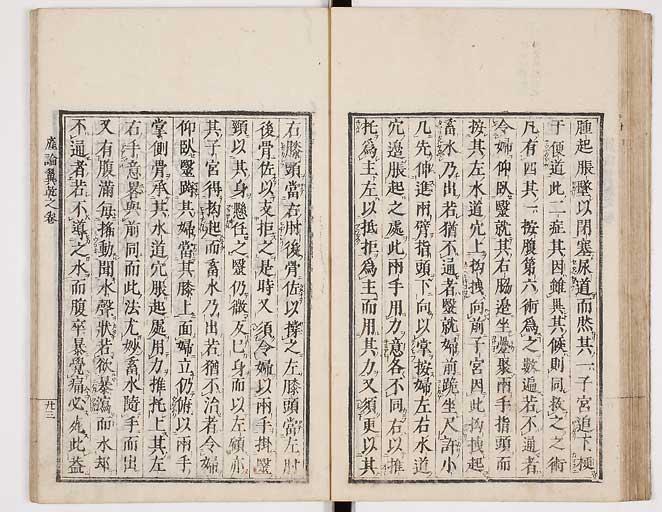 腫起脹墜以閉塞尿道而然其一子宮迫下挺
于便道此二症其因雖異其候則同救之之術
凡有四其一按腹第六術爲之數遍若不通者
令婦仰臥毉就其右脇邊坐疊聚兩手指頭而
按其左水道穴上拘拽向前子宮因此拘拽起
畜水乃出若猶不通者毉就婦前跪坐尺許小
几先伸進兩臂指頭下向以掌按婦左右水道
穴邊脹起之處此兩手用力意各不同右以推
托爲主左以抵拒爲主而用其力又須更以其
右膝頭當右肘後骨佐以撐之左膝頭當左肘
後骨佐以支拒之是時又須令婦以兩手掛毉
頸以其身懸任之毉仍微反己身而以左傾亦
其子宮得拘起而畜水乃出若猶不治者令婦
仰臥毉跨其婦當其膝上面婦立仍俯以兩手
掌側骨承其水道穴脹起處用力推托上其左
右手意略與前同而此法尤妙畜水隨手而出
又有腹滿每搖動聞水聲狀若欲暴瀉而水却
不通者若不導之水而腹卒暴覺痛必死此益
產論翼乾之卷
廿三